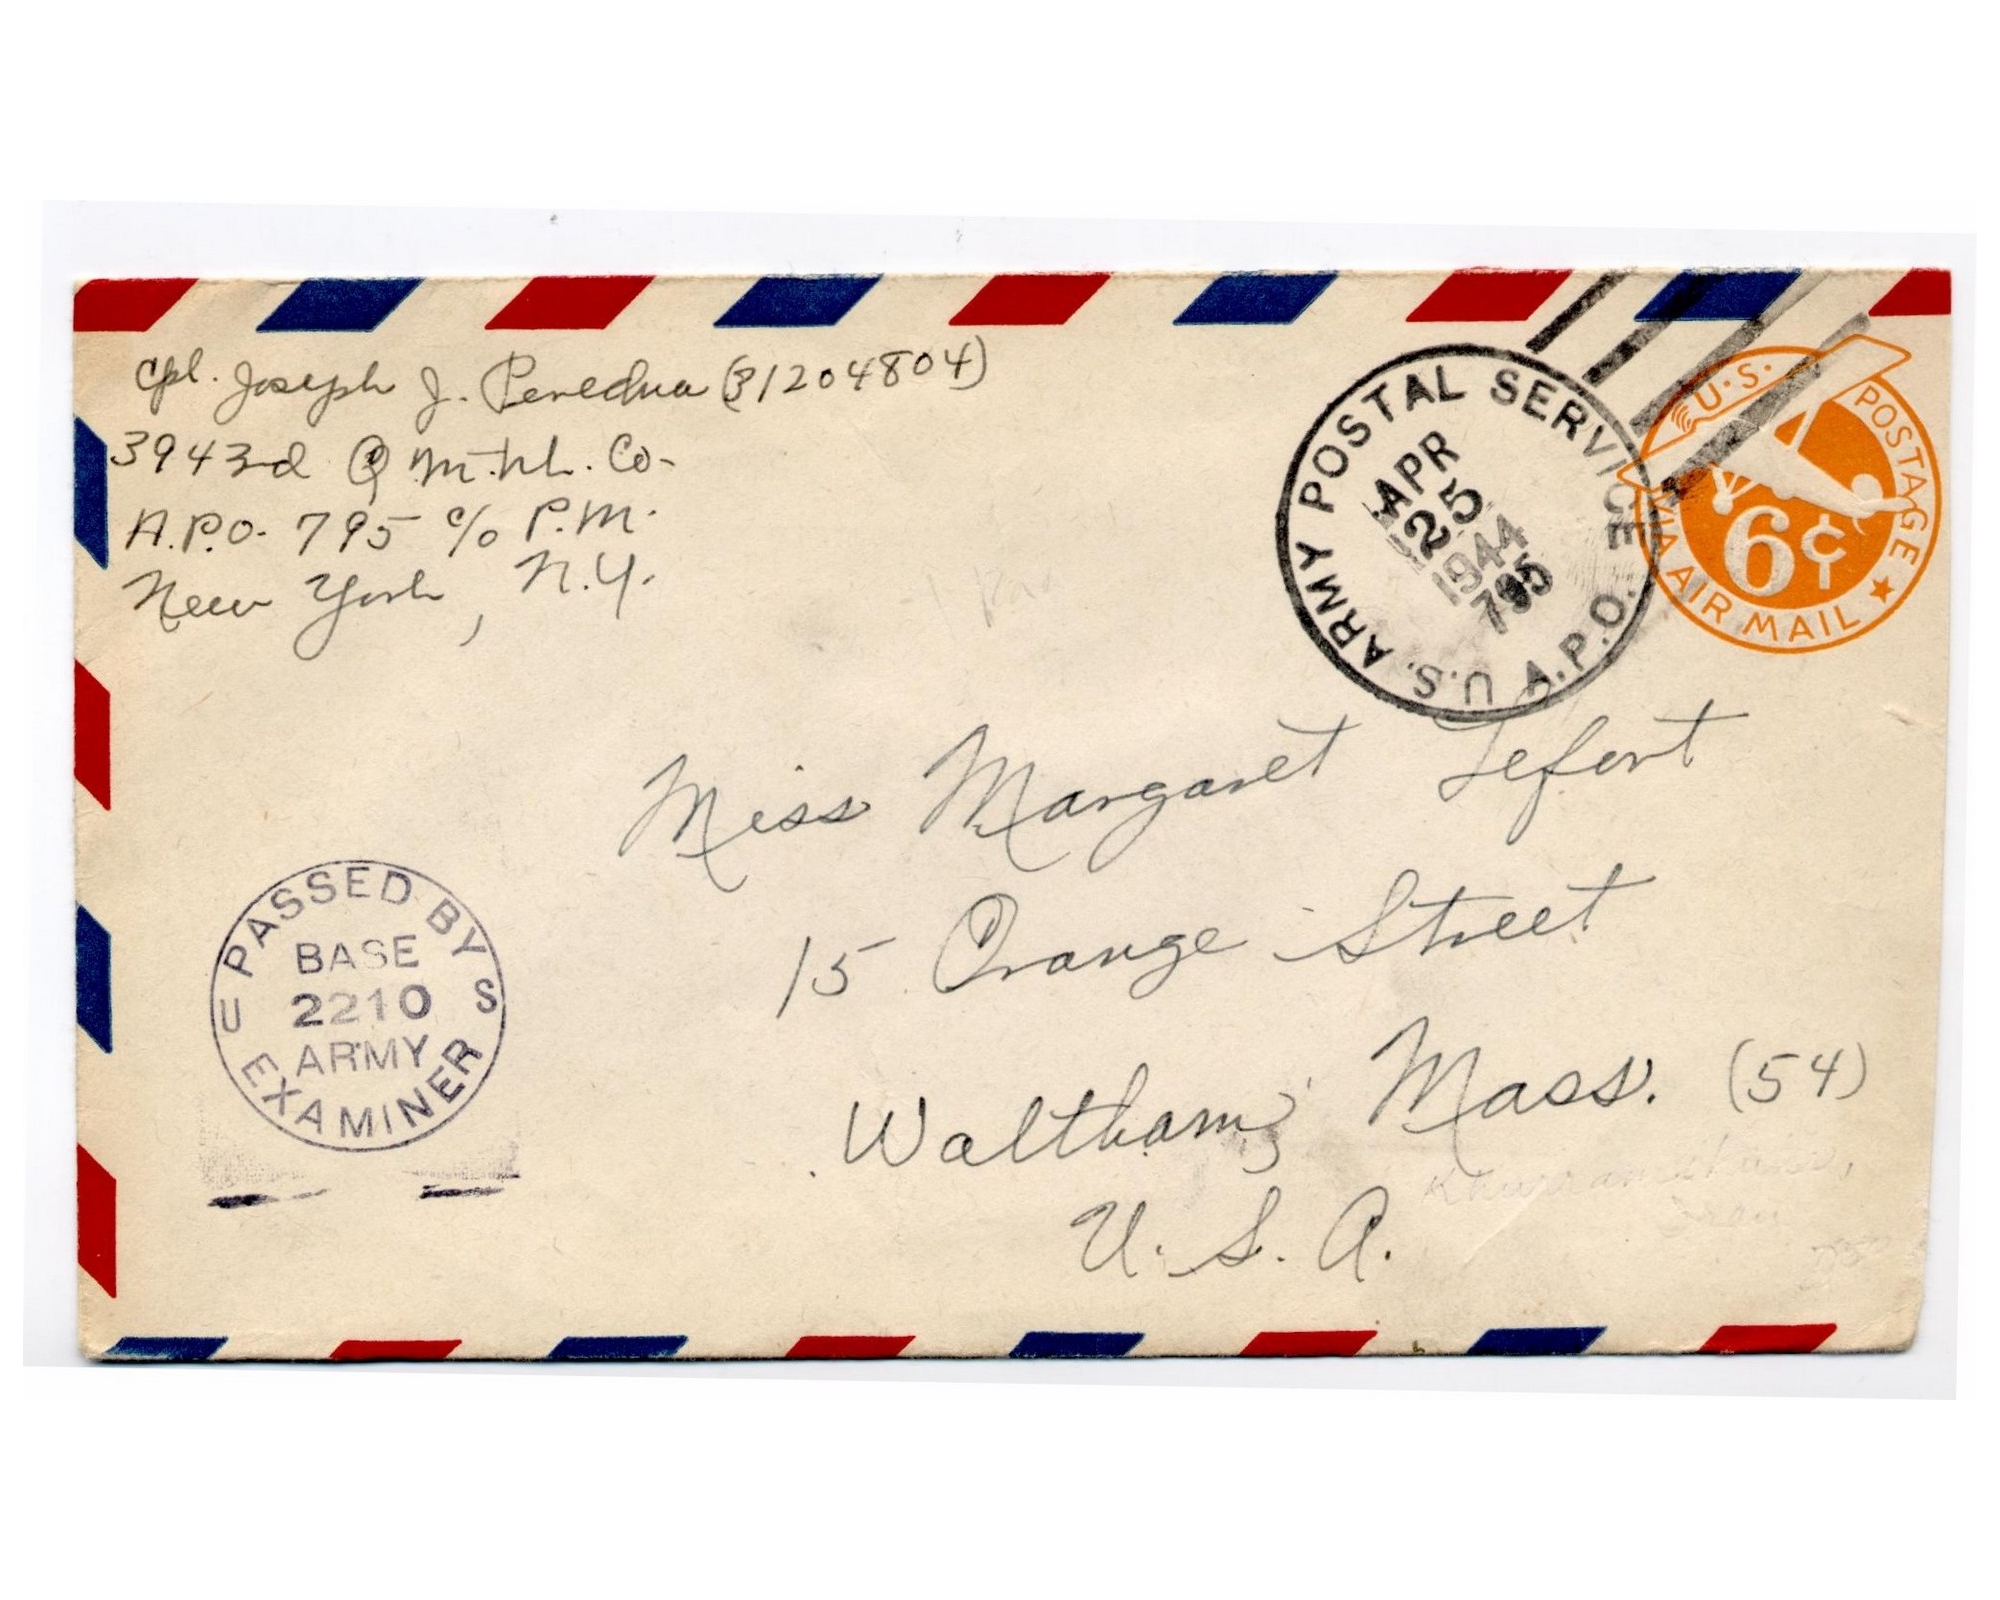 Cpl. Joseph J. Peredna (31204804)
3943rd Q M. Trk. Co.
A.P.O. 795 c/o P.M.
New York, N.Y.
U.S. ARMY POSTAL SERVICE A.P.O.
APR
25
1944
795
U.S. POSTAGE
6¢
VIA AIR MAIL
Miss Margaret Lefort
15 Orange Street
Waltham, Mass. (54)
U. S. A.
PASSED BY
BASE
U 2210 S
ARMY
EXAMINER
Iran